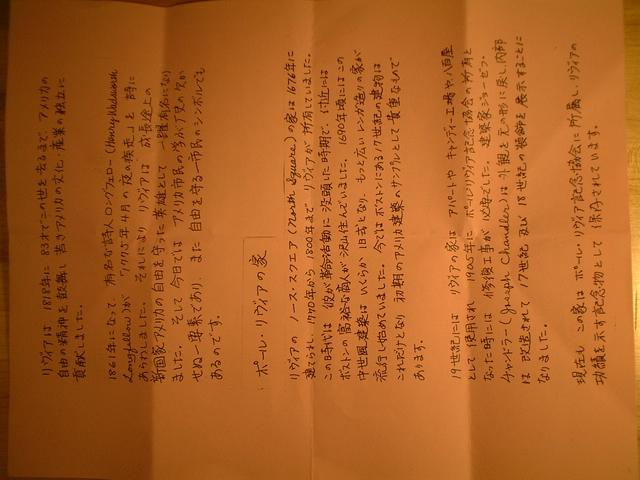 リヴィアは 1818年に 83才でこの世を去るまで、アメリカの
自由の精神を鼓舞し 若きアメリカの文化・産業の独立に
貢献しました。
1861年になって 有名な詩人ロングフェロー (Henry Wadsworth
Longfellow) が 「1775年4月 夜の疾走」と 詩に
あらわしました。それにより リヴィアは 成長途上の
新国家アメリカの自由を守った 英雄として 一躍有名になり
ました。そして 今日では アメリカ市民の 欠か
せぬ 要素であり、また 自由を守る一市民のシンボルでも
あるのです。
ポール・リヴィアの家
リヴィアの ノース・スクエア (North Square) の家は 1676年に
建てられ、1770年から 1800年まで リヴィアが所有していました。
この時代は 彼が革命活動に没頭した時期で、付近には
ボストンの富裕な商人が沢山住んでいました。1690年頃にはこの
中世風建築は いくらか 旧式となり、もっと広いレンガ造りの家が
流行し始めていました。今では ボストンにある17世紀の建物は
これだけとなり 初期のアメリカ建築のサンプルとして 貴重なもので
あります。
19世紀には リヴィアの家は アパートや キャンディー工場や 八百屋
として 使用され 1905年に ポールリヴィア記念協会の所有と
なった時には 修復工事が 必要でした。建築家ジョーゼフ・
チャンドラー (Joseph Chandler) は 外観を元の形に戻し 内部
は 改造されて 17世紀 及び 18世紀の装飾を 展示することに
なりました。
現在も この家は ポール・リヴィア記念協会に 所属し、リヴィアの
功績を示す記念物として 保存されています。